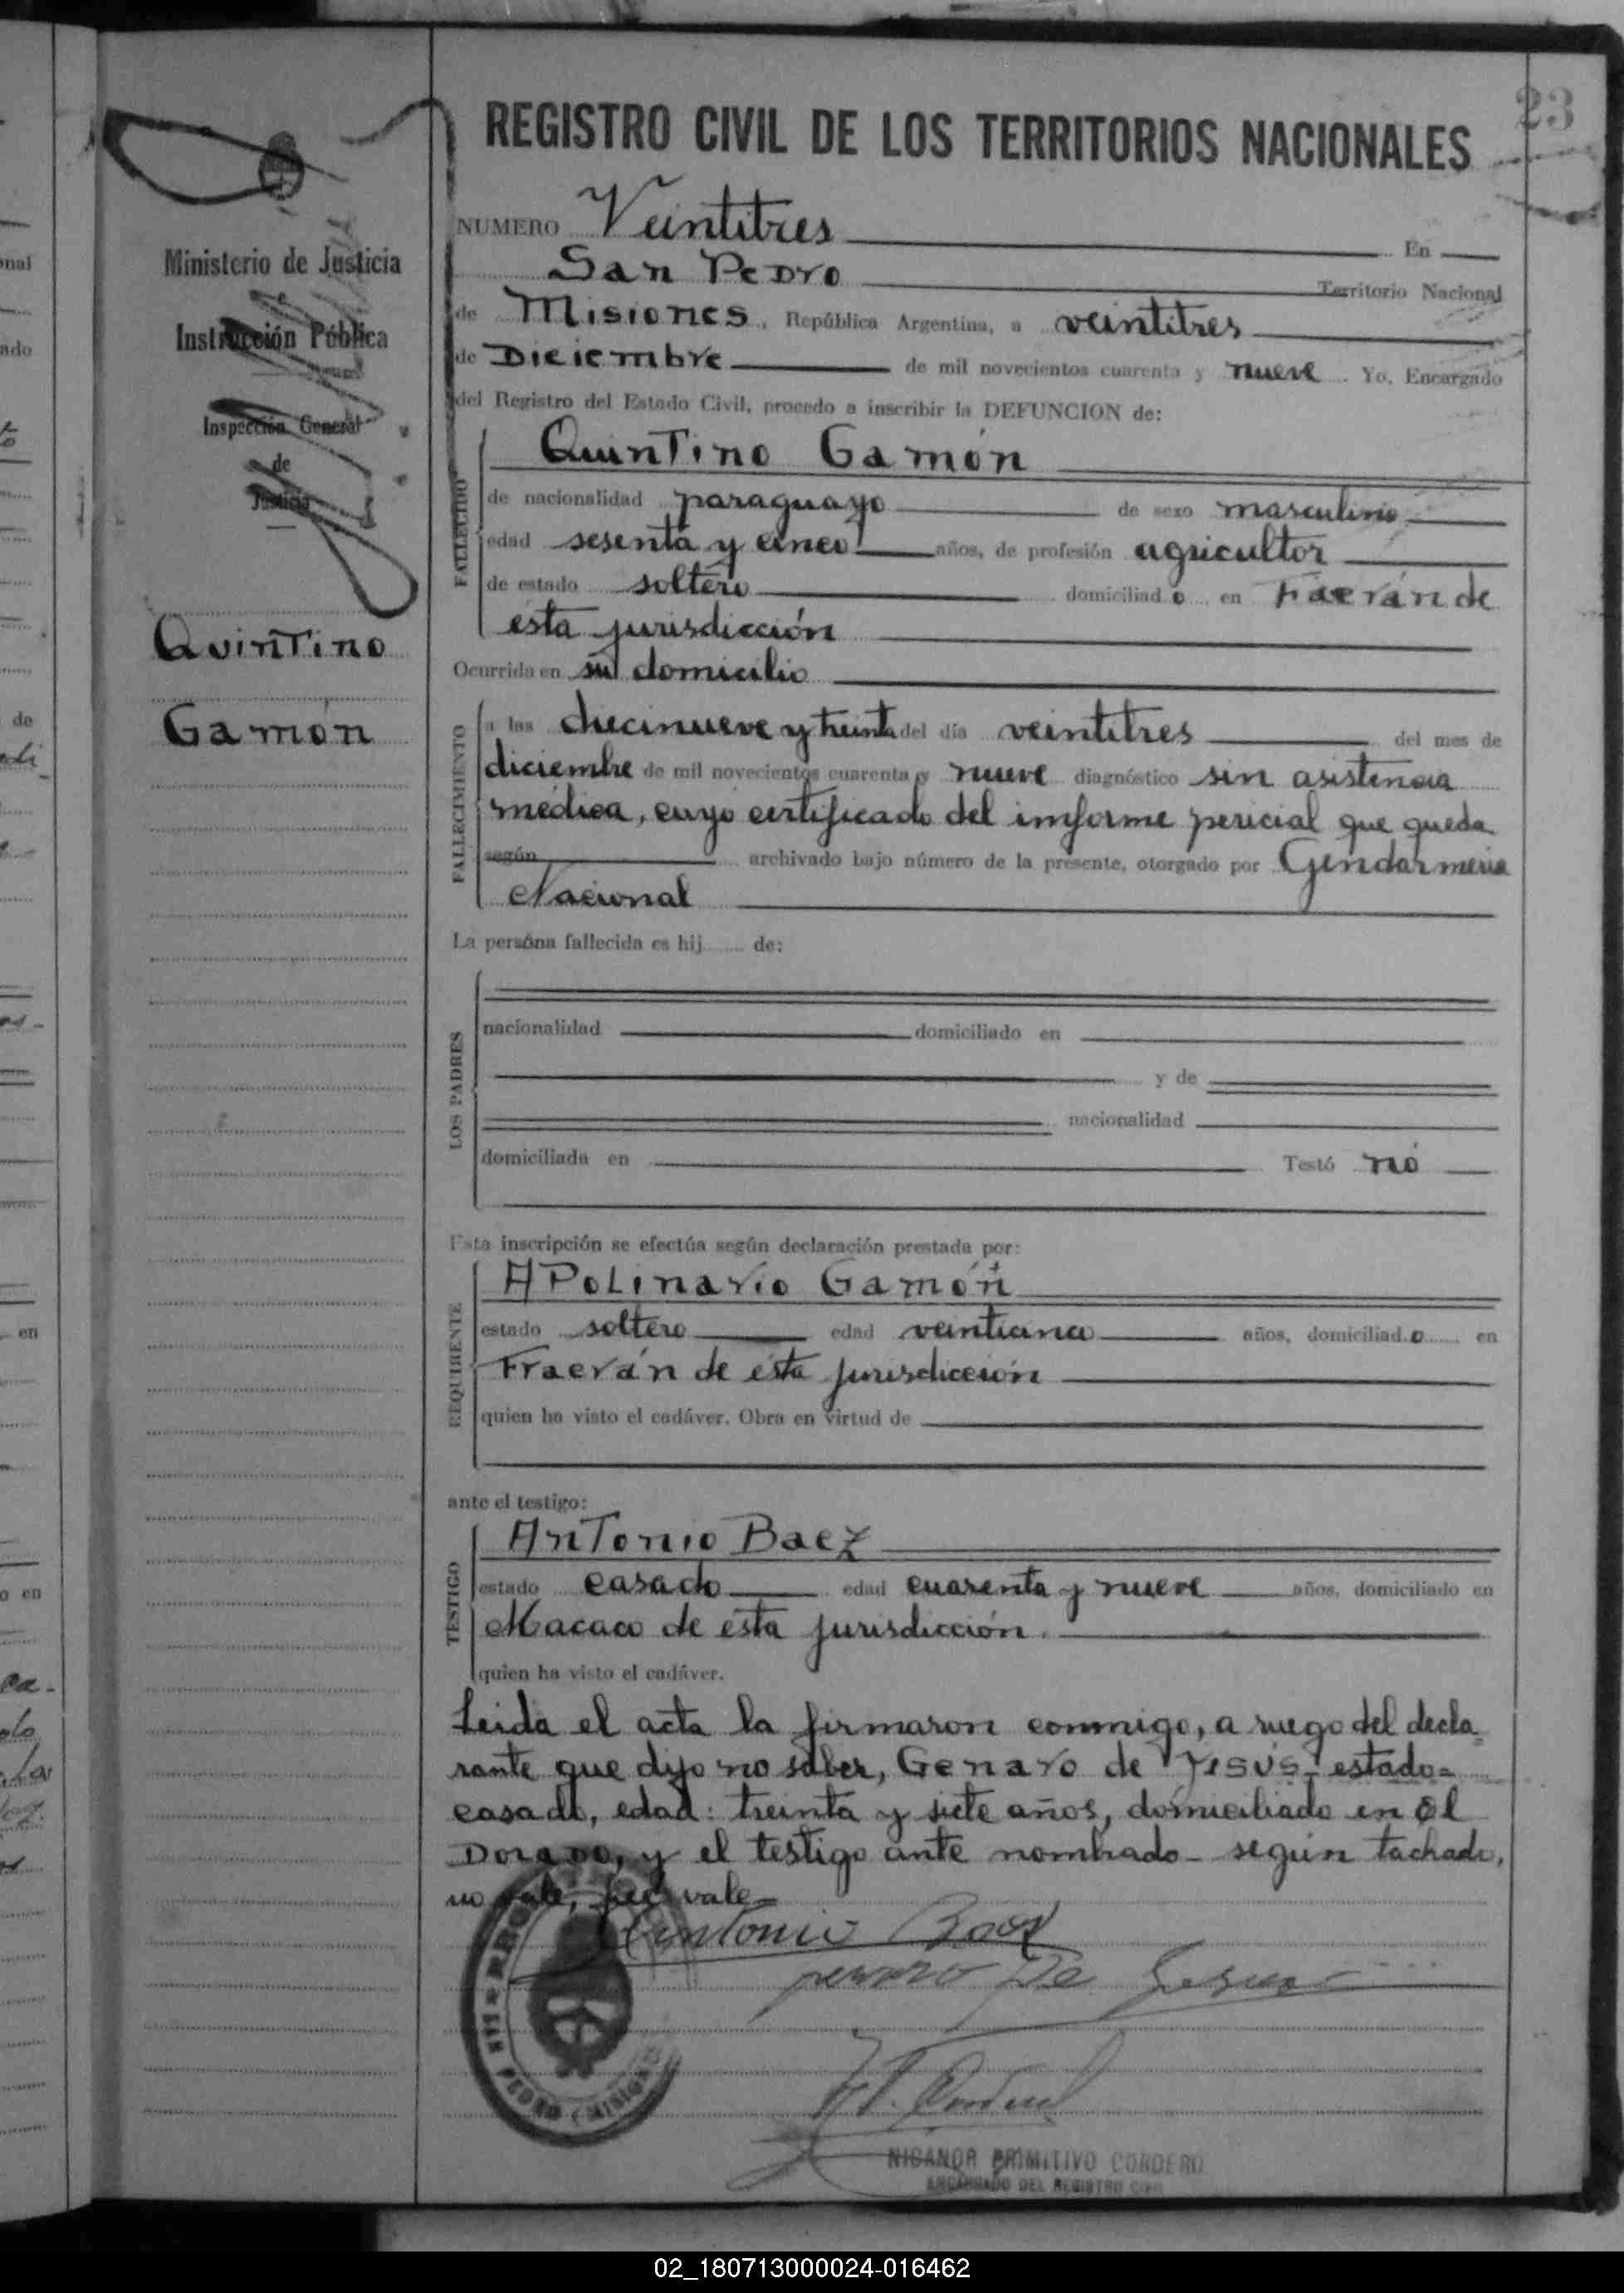 23
REGISTRO CIVIL DE LOS TERRITORIOS NACIONALES
Ministerio de Justicia
e
Instrucción Pública
Inspección General
de
Justicia
Quintino
Gamón
NUMERO Veintitres En
San Pedro Territorio Nacional
de Misiones, República Argentina, a veintitres
de Diciembre de mil novecientos cuarenta y nueve. Yo, Encargado
del Registro del Estado Civil, procedo a inscribir la DEFUNCION de:
FALLECIDO
Quintino Gamón
de nacionalidad paraguayo de sexo masculino
edad sesenta y cinco años, de profesión agricultor
de estado soltero domiciliado en Fracrán de
esta jurisdicción
Ocurrida en su domicilio
FALLECIMIENTO
a las diecinueve y treinta del día veintitres del mes de
diciembre de mil novecientos cuarenta y nueve diagnóstico sin asistencia
médica, cuyo certificado del imforme pericial que queda
según archivado bajo número de la presente, otorgado por Gendarmeria
Nacional
La persona fallecida es hij de:
LOS PADRES
nacionalidad domiciliado en
y de
nacionalidad
domiciliada en Testó nó
Esta inscripción se efectúa según declaración prestada por:
REQUIRENTE
Apolinario Gamón
estado soltero edad años, domiciliado en
Fracrán de ésta jurisdicción
quien ha visto el cadáver. Obra en virtud de
ante el testigo:
TESTIGO
Antonio Baez
estado casado edad cuarenta y nueve años, domiciliado en
Macaco de esta jurisdicción.
quien ha visto el cadáver.
Leida el acta la firmaron conmigo, a ruego del decla
rante que dijo no saber, Genaro de Jesús- estado=
casado, edad: treinta y siete años, domiciliado en El
Dorado, y el testigo ante nombrado- según tachado,
no vale, vale=
Antonio Baez
genaro De Jesus
NICANOR PRIMITIVO CORDERO
ENCARGADO DEL REGISTRO CIVIL
PEDRO (MISIONES
02_180713000024-016462